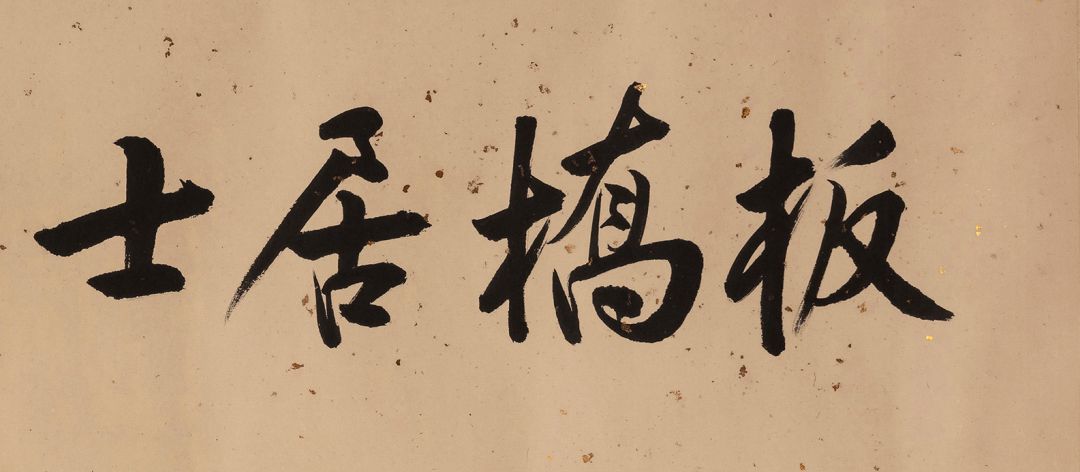 板橋居士